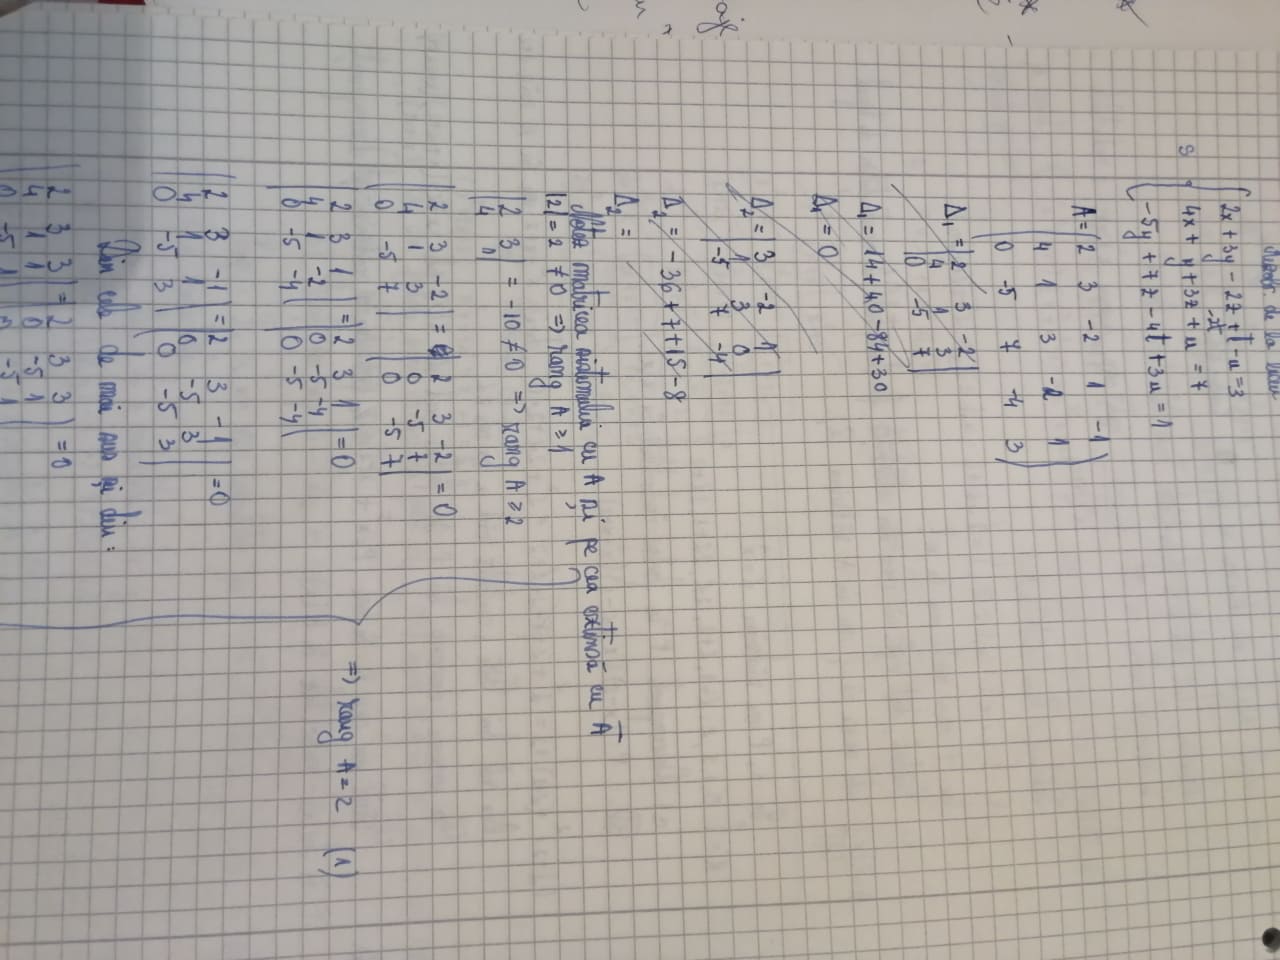 9
2x + 3y - 2z + t - u = 3
4x + y + 3z - 2t + u = 7
-5y + 7z - 4t + 3u = 1
A = ( 2 3 -2 1 -1
4 1 3 -2 1
0 -5 7 -4 3 )
Δ₁ = | 2 3 -2
4 1 3
10 -5 7 |
Δ₁ = 14 + 40 - 84 + 30
Δ₁ = 0
Δ₂ = | 3 -2 1
1 3 0
-5 7 -4 |
Δ₂ = -36 + 7 + 15 - 8
Δ₂ =
Notăm matricea sistemului cu A și pe cea extinsă cu Ā
|2| = 2 ≠ 0 => rang A ≥ 1
| 2 3
4 1 | = -10 ≠ 0 => rang A ≥ 2
| 2 3 -2
4 1 3
0 -5 7 | = | 2 3 -2
0 -5 7
0 -5 7 | = 0
| 2 3 1
4 1 -2
0 -5 -4 | = | 2 3 1
0 -5 -4
0 -5 -4 | = 0
=> rang A = 2 (1)
| 2 3 -1
4 1 1
0 -5 3 | = | 2 3 -1
0 -5 3
0 -5 3 | = 0
Din cele de mai sus și din:
| 2 3 3
4 1 1
0 -5 1 | = | 2 3 3
0 -5 1
0 -5 1 | = 0